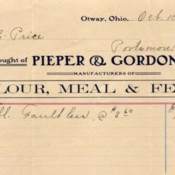 Otway, Ohio, Oct 10
Price
Portsmou
ought of PIEPER & GORDON
MANUFACTURERS OF
LOUR, MEAL & FE
Faultless @ $3.60